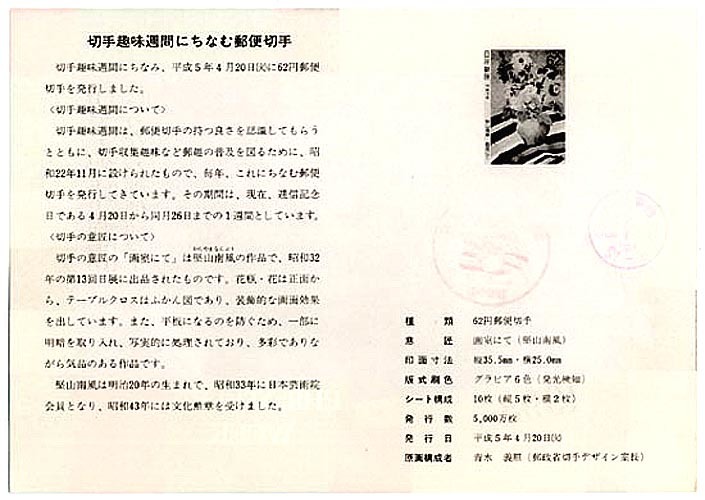 切手趣味週間にちなむ郵便切手
切手趣味週間にちなみ、平成5年4月20日㈫に62円郵便
切手を発行しました。
〈切手趣味週間について〉
切手趣味週間は、郵便切手の持つ良さを認識してもらう
とともに、切手収集趣味など郵趣の普及を図るために、昭
和22年11月に設けられたもので、毎年、これにちなむ郵便
切手を発行してきています。その期間は、現在、逓信記念
日である4月20日から同月26日までの1週間としています。
〈切手の意匠について〉
切手の意匠の「画室にて」は堅山南風の作品で、昭和32
年の第13回日展に出品されたものです。花瓶・花は正面か
ら、テーブルクロスはふかん図であり、装飾的な画面効果
を出しています。また、平板になるのを防ぐため、一部に
明暗を取り入れ、写実的に処理されており、多彩でありな
がら気品のある作品です。
堅山南風は明治20年の生まれで、昭和33年に日本芸術院
会員となり、昭和43年には文化勲章を受けました。
種類 62円郵便切手
意匠 画室にて（堅山南風）
印面寸法 縦35.5mm・横25.0mm
版式刷色 グラビア6色（発光検知）
シート構成 10枚（縦5枚・横2枚）
発行数 5,000万枚
発行日 平成5年4月20日㈫
原画構成者 清水 義照（郵政省切手デザイン室長）